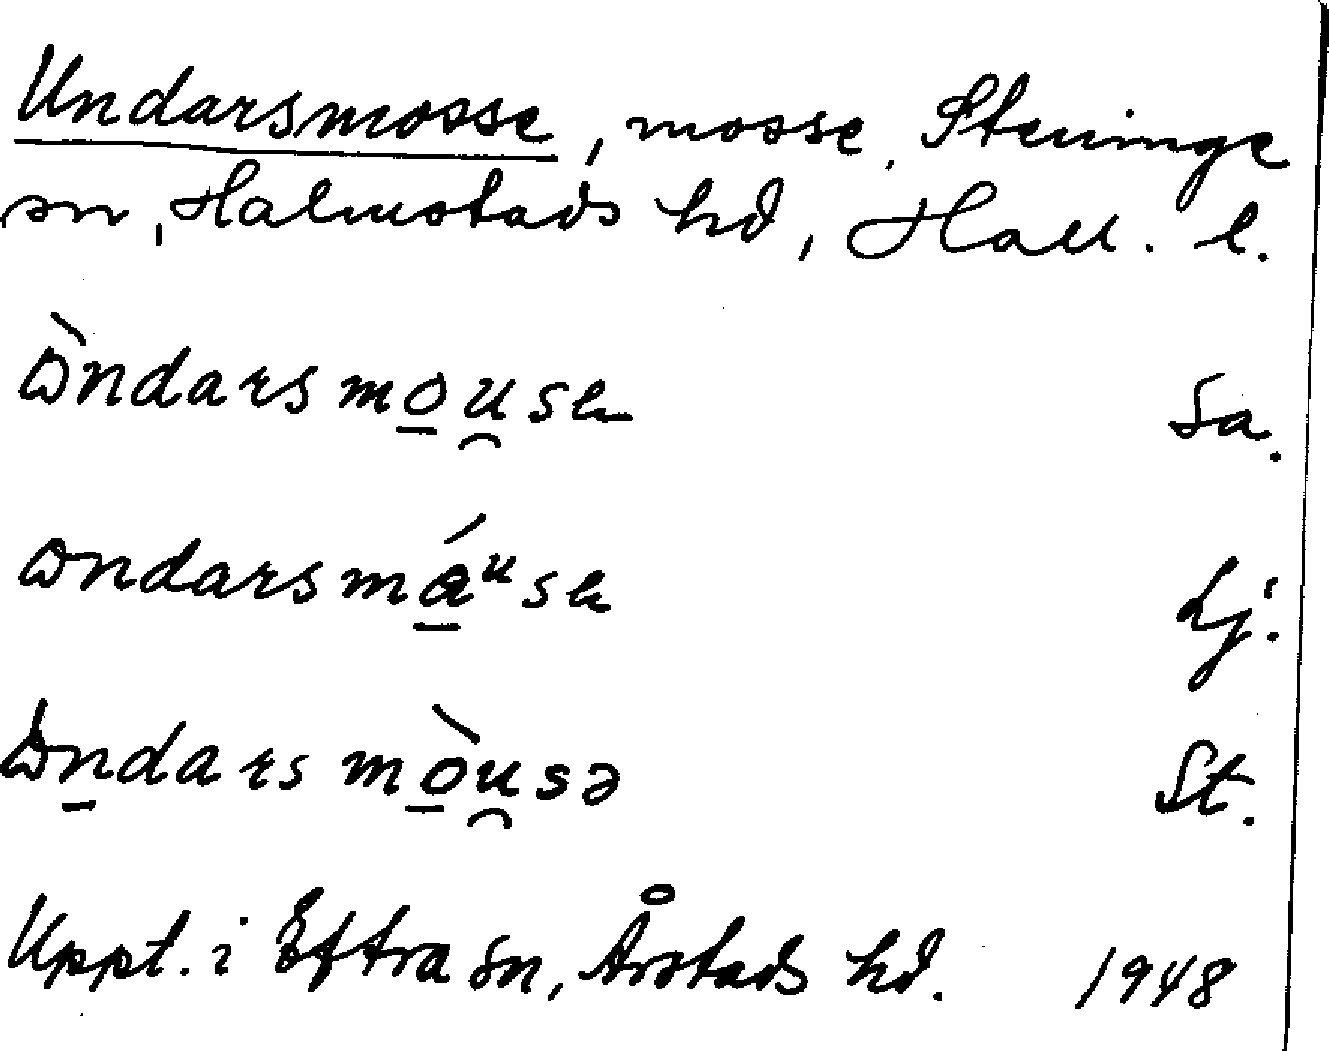 Undarsmosse, mosse, Steninge
sn, Halmstads hd, Hall. l.
ωndarsmo̲u̯se Sa.
ωndarsmá̲ᵘse Lj.
ωn̲darsmò̲u̯sə St.
Uppt. i Eftra sn, Årstads hd. 1948